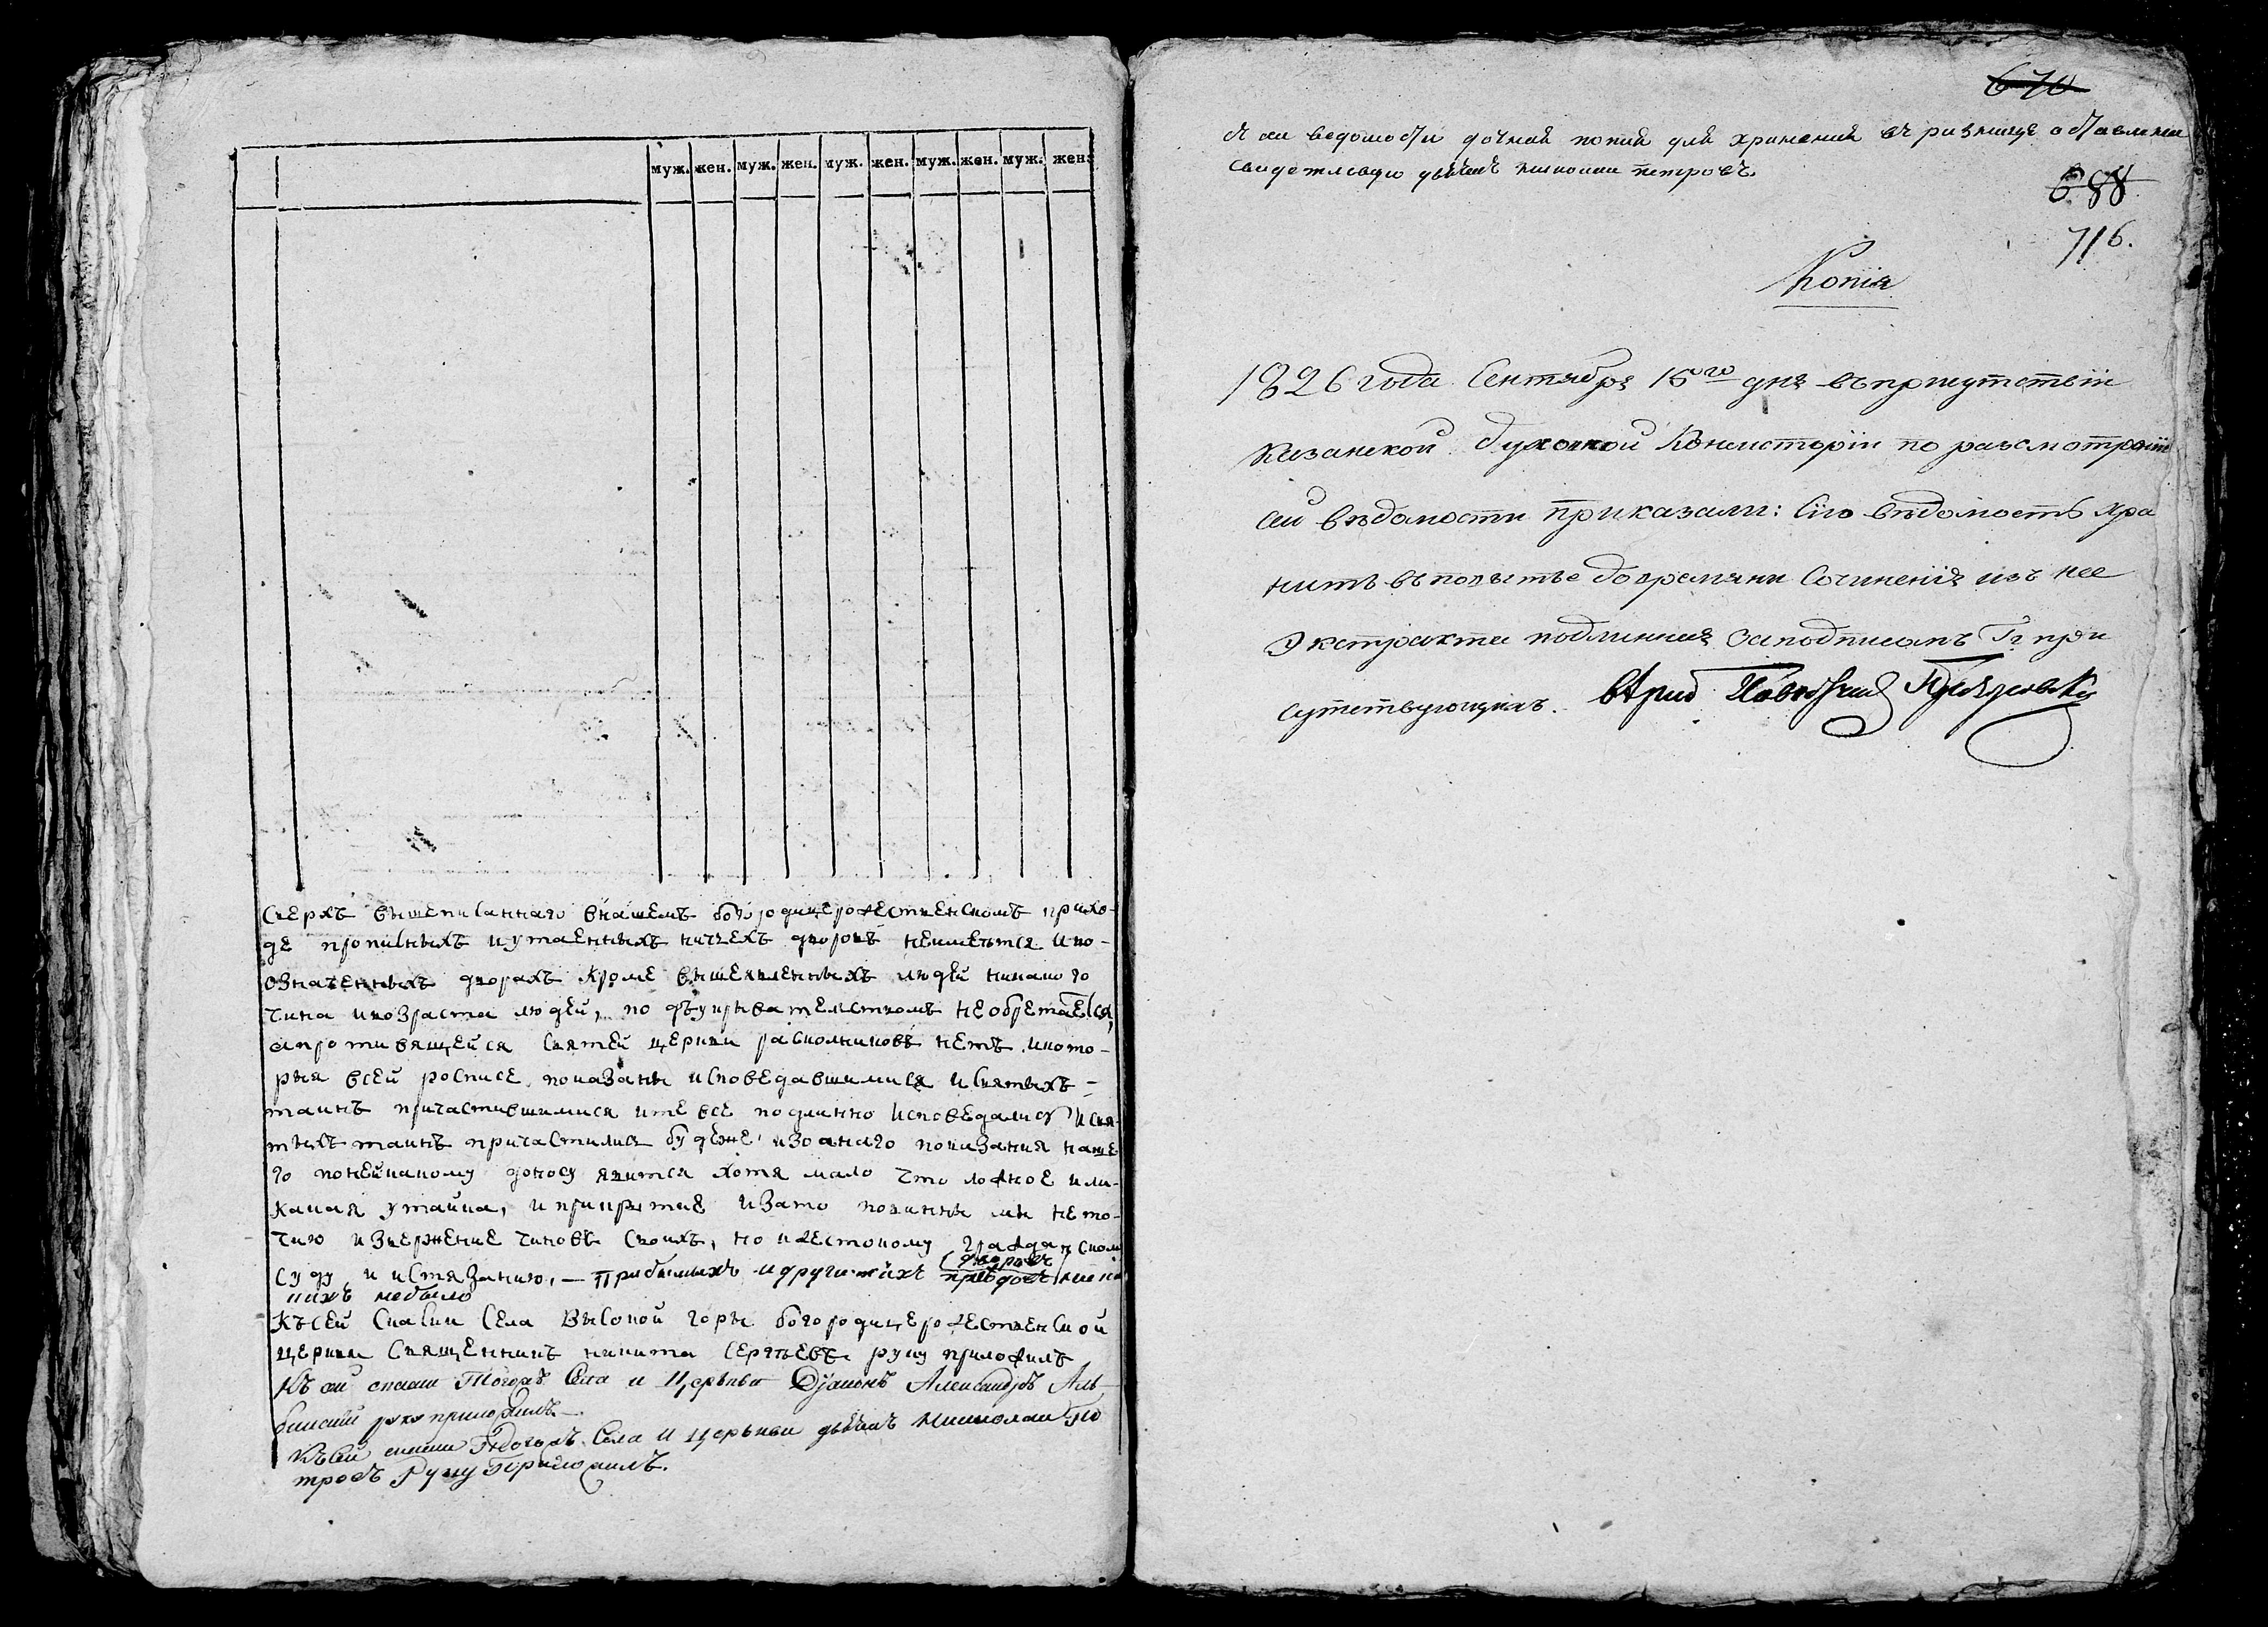 муж. жен. муж. жен. муж. жен. муж. жен. муж. жен.
Сверхъ вышеписаннаго внашемъ богородицерождественскомъ прихо-
де прописныхъ иутаенныхъ ничьехъ дворовъ неимеется иво-
означенныхъ дворахъ кроме вышеявленныхъ людей никакого
чина ивозраста людей, по двуукрывателствомъ необретается,
апротивящейся святей церкви расколниковъ нетъ. икото-
рыя всей росписе показаны исповедавшимися исвятыхъ-
таинъ причастившимися ите все подлинно исповедались и свя-
тыхъ таинъ причастились будеже изоанаго показания наше
го понейпакому доносу явится хотя мало что ложное или-
какая утайка, и прикрытие изато повинны мы нето-
чию извержение чиновъ своихъ, но ижестокому гражданском
суду и истязанию, — Прибылыхъ идругихъ
дворовъ
небыло
Къ сей скаски Села Высокой горы богородицерождественской
церкви Священникъ никита Сергъевъ руку приложилъ
Къ сей скаски Тогожъ Села и Церькви Дьяконъ Александръ Аль
руку приложилъ.
Къ сей скаски Тогожъ Села и церькви дьячекъ Николаи Пе
тровъ Руку Приложилъ.
670
сеи ведомости точная копия для хранения въ ризнице оставлена
свидетелствую дьячекъ николаи петровъ
688
716.
Копія
1826 года Сентября 15го дня въ присутствіи
Казанской духовной Консисторіи по разсмотреніи
сей вѣдомости приказали: Сію вѣдомость хра
нить въ повытье до времяни Сочиненія изъ нее
Экстракта подлинная заподписомъ Гг при
сутствующихъ.